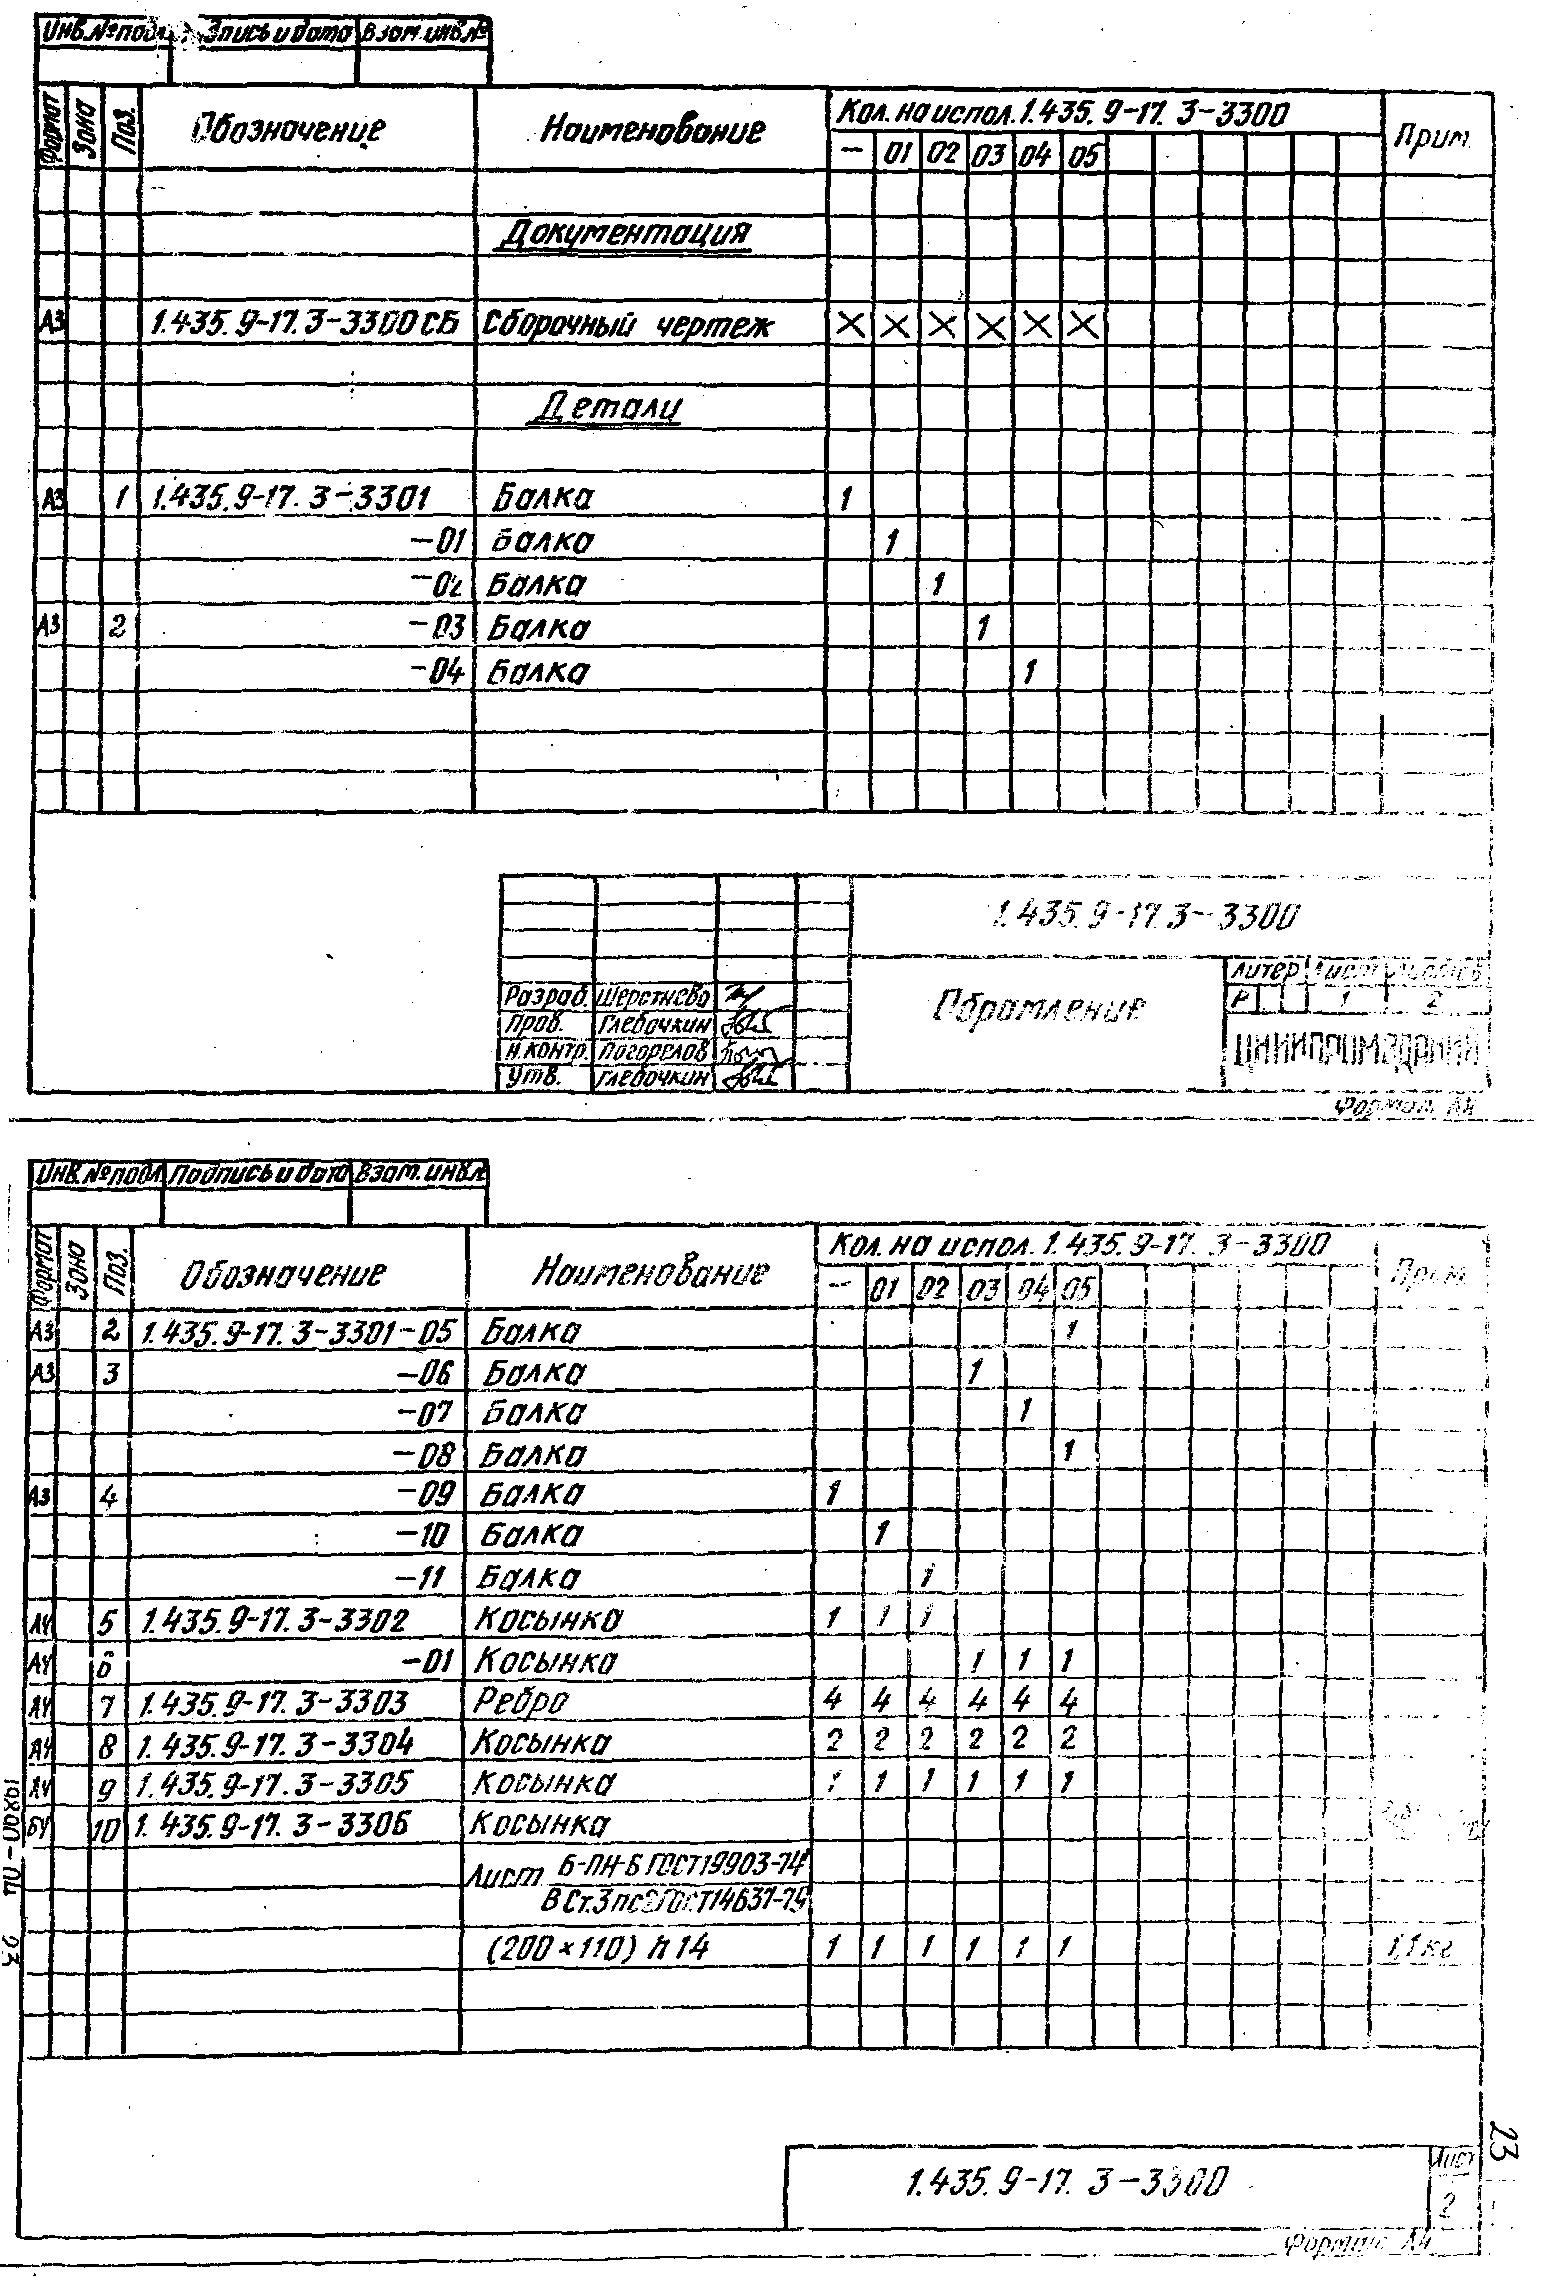 Инв.№подл. Подпись и дата Взам.инв.№
Формат Зона Поз. Обозначение Наименование Кол. на испол. 1.435.9-17.3-3300 Прим.
— 01 02 03 04 05
Документация
А3 1.435.9-17.3-3300 СБ Сборочный чертеж X X X X X X
Детали
А3 1 1.435.9-17.3-3301 Балка 1
-01 Балка 1
-02 Балка 1
А3 2 -03 Балка 1
-04 Балка 1
1.435.9-17.3-3300
Разраб. Шерстнева
Пров. Глебочкин
Н.контр. Погорелов
Утв. Глебочкин
Обрамление
Литер Лист Листов
Р 1 2
ЦНИИПРОМЗДАНИЙ
Формат А4
Инв.№подл. Подпись и дата Взам.инв.№
Формат Зона Поз. Обозначение Наименование Кол. на испол. 1.435.9-17.3-3300 Прим.
— 01 02 03 04 05
А3 2 1.435.9-17.3-3301-05 Балка 1
А3 3 -06 Балка 1
-07 Балка 1
-08 Балка 1
А3 4 -09 Балка 1
-10 Балка 1
-11 Балка 1
А4 5 1.435.9-17.3-3302 Косынка 1 1 1
А4 6 -01 Косынка 1 1 1
А4 7 1.435.9-17.3-3303 Ребро 4 4 4 4 4 4
А4 8 1.435.9-17.3-3304 Косынка 2 2 2 2 2 2
А4 9 1.435.9-17.3-3305 Косынка 1 1 1 1 1 1
БЧ 10 1.435.9-17.3-3306 Косынка
Лист Б-ПН-6 ГОСТ 19903-74
ВСт.3пс2 ГОСТ 14637-79
(200×110) h14 1 1 1 1 1 1 1,1 кг
1.435.9-17.3-3300
Лист
2
Формат А4
23